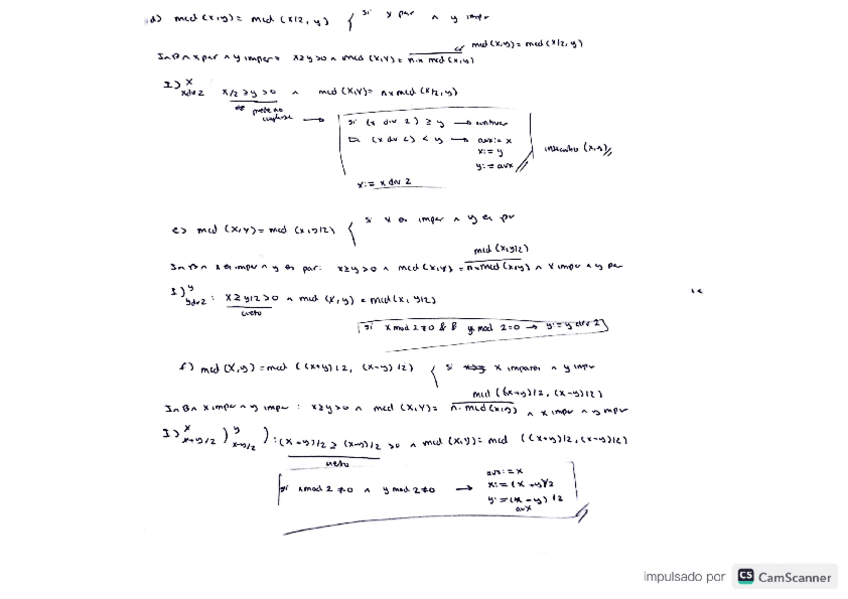 d) mcd (x,y) = mcd (x/2, y) { si x par ∧ y impar
mcd (x,y) = mcd (x/2, y)
I ∧ B ∧ x par ∧ y impar ≡ x≥y>0 ∧ mcd (X,Y) = n·x mcd (x,y)
I) x x div 2 x/2 ≥ y > 0 ∧ mcd (X,Y) = n x mcd (x/2, y)
puede no cumplirse →
si (x div 2) ≥ y → continuar
(x div 2) < y → aux:= x
x:= y
y:= aux
intercambio (x,y)
x:= x div 2
e) mcd (x,y) = mcd (x,y/2) { si x es impar ∧ y es par
mcd (x,y/2)
I ∧ B ∧ x es impar ∧ y es par: x≥y>0 ∧ mcd (X,Y) = n x mcd (x,y) ∧ x impar ∧ y par
I) y y div 2 : x ≥ y/2 > 0 ∧ mcd (x,y) = mcd (x, y/2)
cierto
si x mod 2 ≠ 0 && y mod 2 = 0 → y:= y div 2
f) mcd (x,y) = mcd ((x+y)/2, (x-y)/2) { si x impar ∧ y impar
mcd ((x+y)/2, (x-y)/2)
I ∧ B ∧ x impar ∧ y impar : x≥y>0 ∧ mcd (X,Y) = n·mcd (x,y) ∧ x impar ∧ y impar
I) x x+y/2 ) y x-y/2 ) : (x+y)/2 ≥ (x-y)/2 > 0 ∧ mcd (x,y) = mcd ((x+y)/2, (x-y)/2)
cierto
si x mod 2 ≠ 0 ∧ y mod 2 ≠ 0 → aux:= x
x:= (x+y)/2
y:= (x-y)/2
aux
impulsado por CS CamScanner